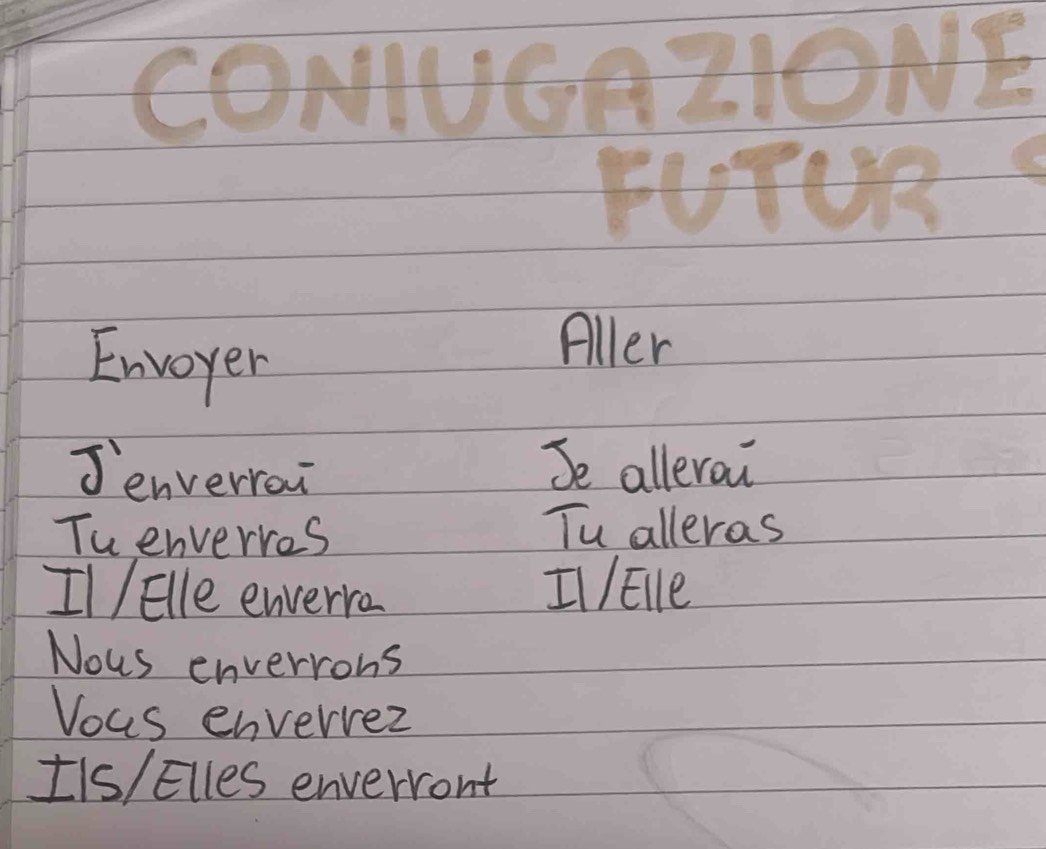 CONIUGAZIONE
FUTUR
Envoyer
J'enverrai
Tu enverras
Il/Elle enverra
Nous enverrons
Vous enverrez
Ils/Elles enverront
Aller
Je allerai
Tu alleras
Il/Elle